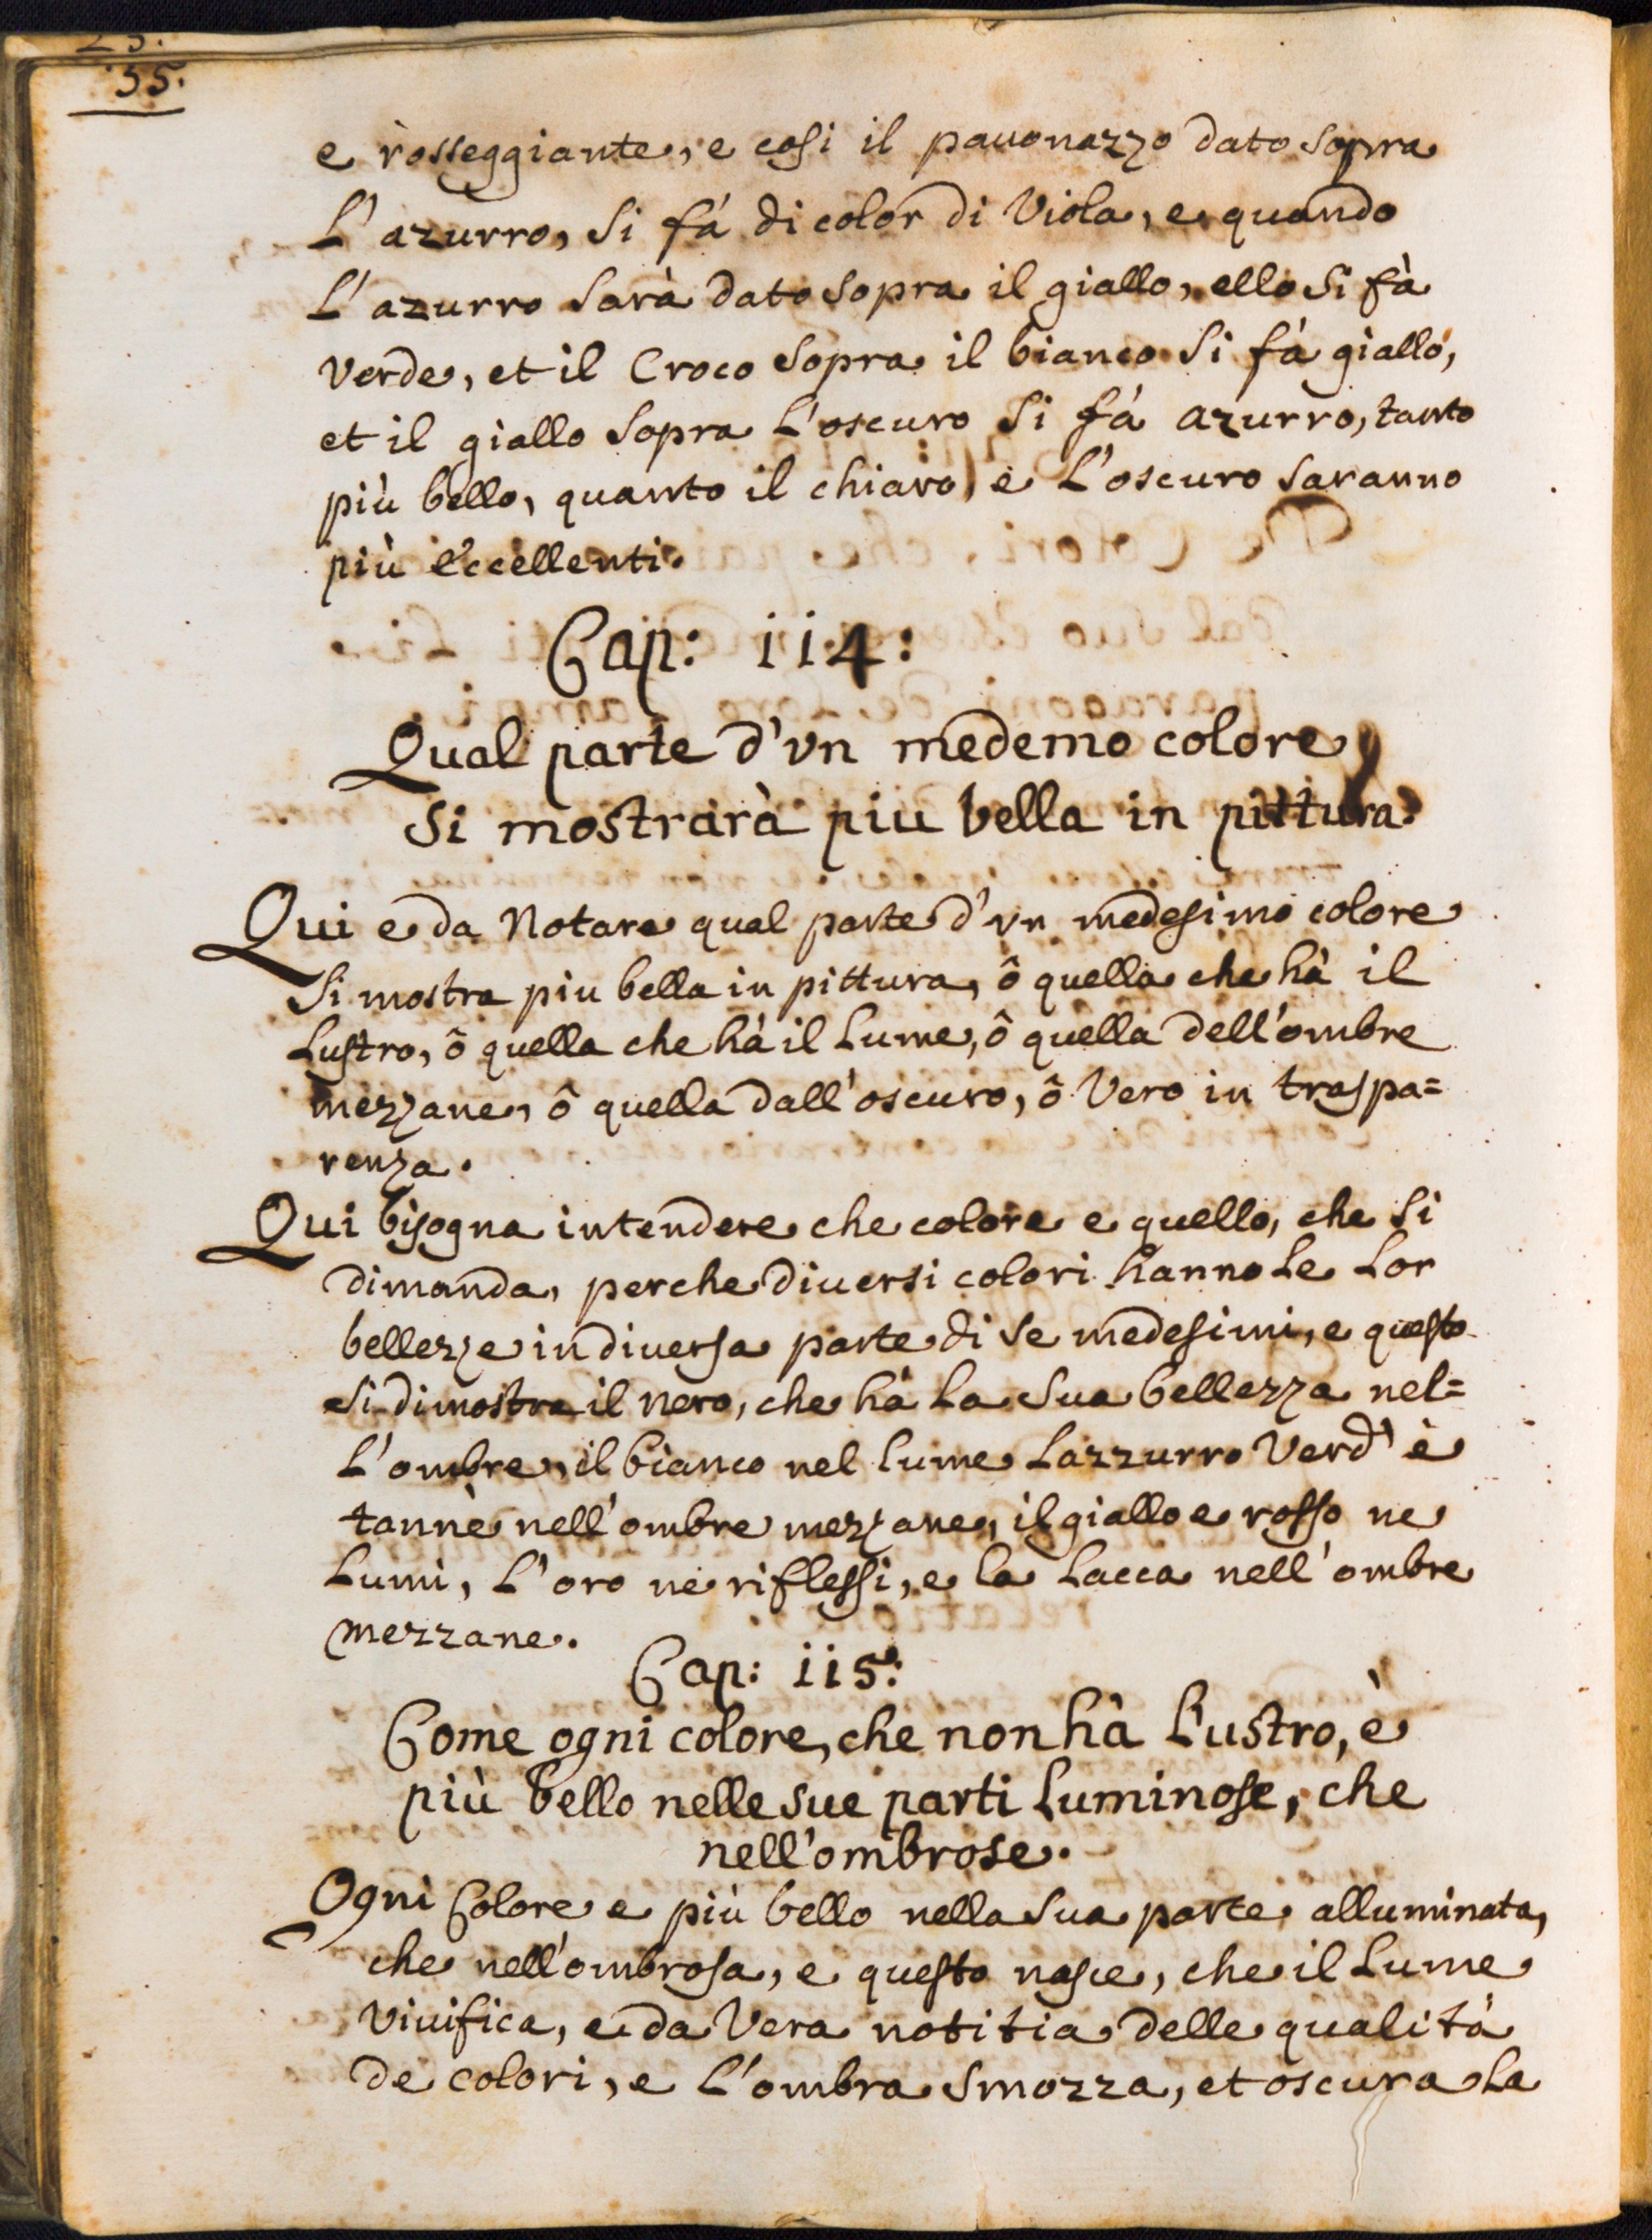 35.
e rosseggiante, e cosi il pauonazzo dato sopra
L'azurro, si fà di color di Viola, e quando
L'azurro sarà dato sopra il giallo, ello si fà
verde, et il Croco sopra il bianco si fà giallo,
et il giallo sopra L'oscuro si fà azurro, tanto
più bello, quanto il chiaro, e L'oscuro saranno
più eccellenti.
Cap: 114:
Qual parte d'vn medemo colore
si mostrarà piu bella in pittura.
Qui e da Notare qual parte d'vn medesimo colore
si mostra piu bella in pittura, ô quella che hà il
Lustro, ô quella che hà il Lume, ô quella dell'ombre
mezzane, ô quella dall'oscuro, ô Vero in traspa=
renza.
Qui bisogna intendere che colore e quello, che si
dimanda, perche diuersi colori hanno Le Lor
bellezze in diuersa parte di se medesimi, e questo
si dimostra il nero, che hà La sua bellezza nel=
L'ombre, il bianco nel lume Lazzurro Verd' è
tannè nell'ombre mezzane, il giallo e rosso ne
Lumi, L'oro ne riflessi, e la Lacca nell'ombre
mezzane.
Cap: 115:
Come ogni colore, che non hà Lustro, è
più bello nelle sue parti Luminose, che
nell'ombrose.
Ogni Colore e più bello nella sua parte alluminata,
che nell'ombrosa, e questo nasce, che il Lume
viuifica, e da Vera notitia delle qualità
de colori, e L'ombra smozza, et oscura La